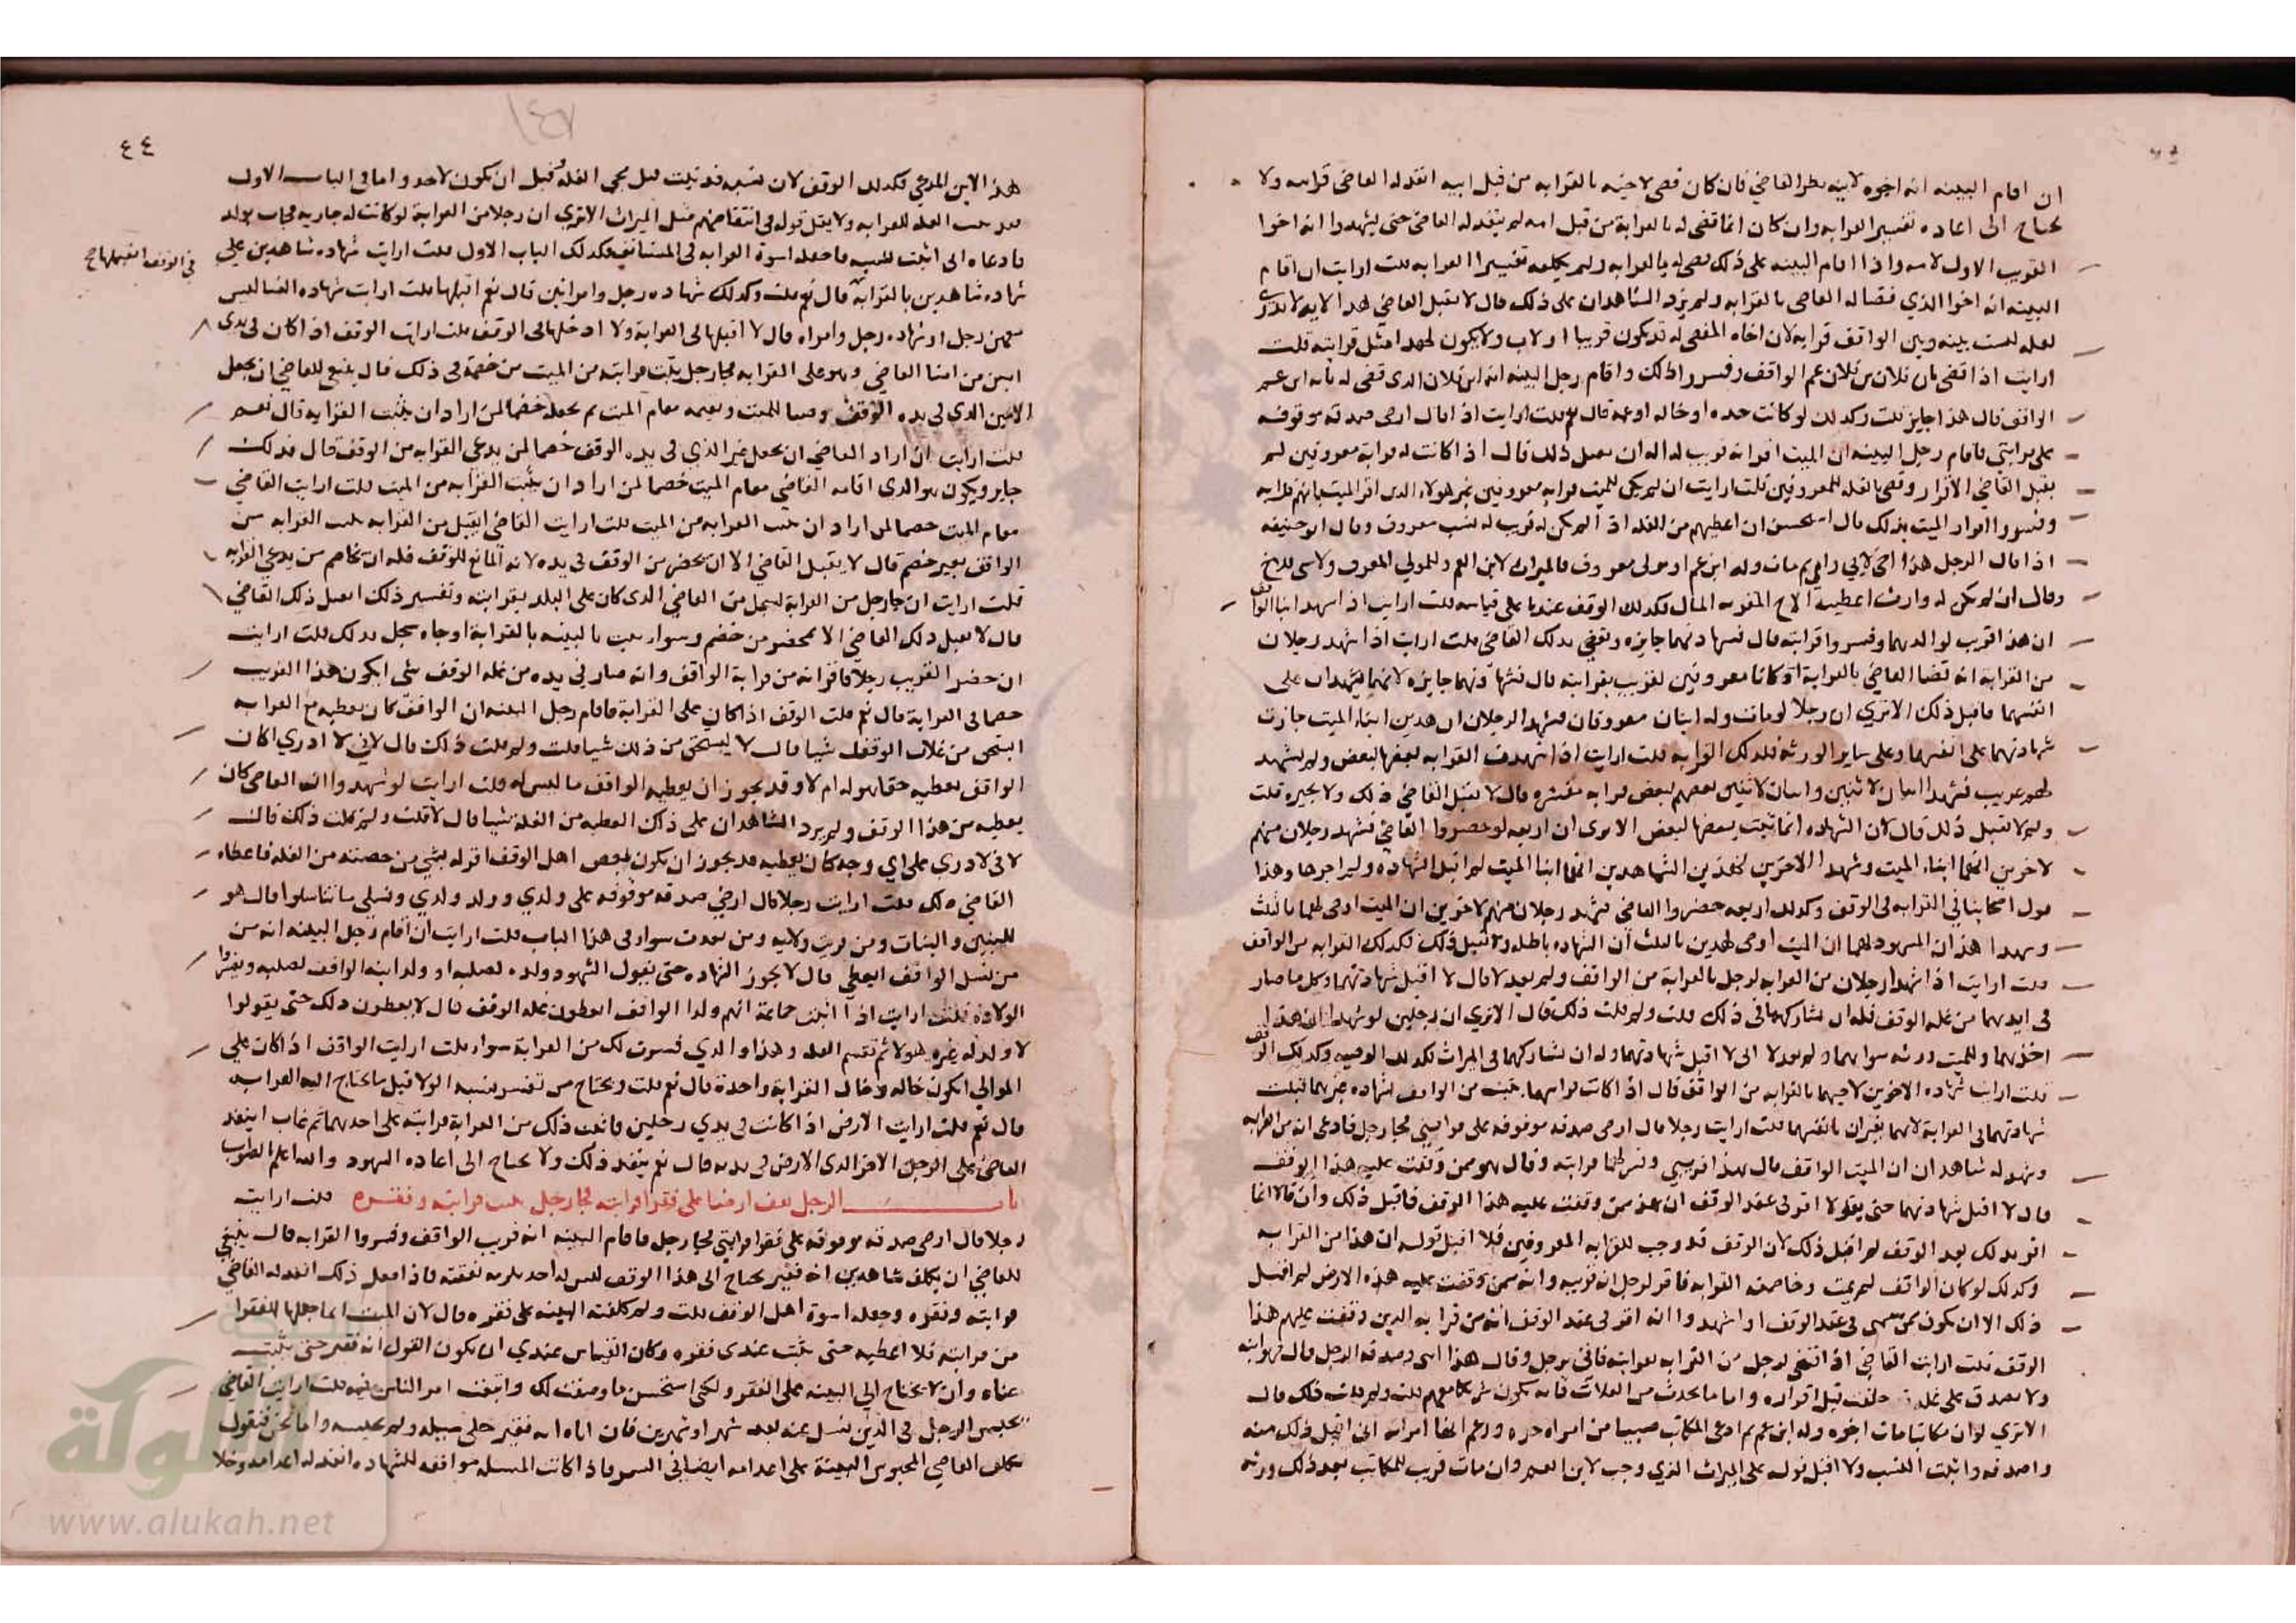 ان اقام البينه انه اخوه لابيه نظر القاضي فان كان قضى لاخيه بالقرابه من قبل ابيه انفذ له القاضي قرابته ولا
يحتاج الى اعاده تفسير القرابه وان كان انما قضى له بالقرابة من قبل امه لم ينفذ له القاضي حتى يشهدوا انه اخوا
القريب الاول لامه واذا اقام البينه على ذلك قضى له بالقرابه ولم يكلفه تفسير القرابه قلت ارايت ان اقام
البينه انه اخوا الذي قضا له القاضي بالقرابه ولم يزد الشاهدان على ذلك قال لا يقبل القاضي هذا لانه لا ندري
لعله ليست بينه وبين الواقف قرابه لان اخاه المقضى له قد يكون قريبا لاب ولا يكون لهذا مثل قرابته قلت
ارايت اذا قضى بان فلان بن فلان عم الواقف وفسر ذلك واقام رجل البينه انه ابن فلان الذي قضى له بانه ابن عم
الواقف قال هذا جايز قلت وكذلك لو كانت جده او خاله او عمه قال نعم قلت ارايت اذا قال ارضي صدقه موقوفه
على قرابتي فاقام رجل البينه ان الميت اقر انه قريب له اله ان يعمل ذلك قال اذا كانت له قرابة معروفين لم
يقبل القاضي الاقرار وقضى بالغله للمعروفين قلت ارايت ان لم يكن للميت قرابه معروفين غير هولاء الذى اقر الميت بانهم قرابه
وفسروا اقرار الميت بذلك قال استحسن ان اعطيهم من الغله اذا لم يكن له قريب له نسب معروف وقال ابو حنيفه
اذا قال الرجل هذا اخي لابي وامي ثم مات وله ابن عم او مولى معروف فالميراث لابن العم وللمولي المعروف ولا شي للاخ
وقال ان لم يكن له وارث اعطيت الاخ المقر به المال فكذلك الوقف عندنا على قياسه قلت ارايت اذا شهد ابنا الواقف
ان هذا قريب لوالدهما وفسروا قرابته قال فشهادتهما جايزه ويقضي بذلك القاضي قلت ارايت اذا شهد رجلان
من القرابه انه قضا القاضي بالقرابة او كانا معروفين لقريب بقرابته قال فشهادتهما جايزه لانهما يشهدان على
انفسهما فاقبل ذلك الا ترى ان رجلا لو مات وله ابنان معروفان فشهد الرجلان ان هذين ابناء الميت جازت
شهادتهما على انفسهما وعلى ساير الورثه فكذلك القرابه قلت ارايت اذا شهدت القرابه بعضها لبعض ولم يشهد
لهم غريب فشهد اثنان لاثنين واثنان لاثنين بعضهم لبعض قرابه مفسره قال لا يقبل القاضي ذلك ولا يجيزه قلت
ولم لا تقبل ذلك قال لان الشهاده انما ثبتت بعضها لبعض الا ترى ان اربعه لو حضروا القاضي فشهد رجلان منهم
لاخرين انهما ابناء الميت وشهد الاخرين لهذين الشاهدين انهما ابنا الميت لم اقبل الشهاده ولم اجزها وهذا
قول اصحابنا في القرابه في الوقف وكذلك اربعه حضروا القاضي فشهد رجلان منهم لاخرين ان الميت اوصى لهما بالثلث
وشهدا هذان المشهود لهما ان الميت اوصى لهذين بالثلث ان الشهاده باطله ولا تقبل ذلك فكذلك القرابه من الواقف
قلت ارايت اذا شهد رجلان من القرابه لرجل بالقرابه من الواقف ولم يعدلا قال لا اقبل شهادتهما وكل ما صار
في ايديهما من غله الوقف فله ان يشاركهما في ذلك قلت ولم قلت ذلك قال الا ترى ان رجلين لو شهدا ان هذا
اخوهما وللميت ورثه سواهما ولم يعدلا اني لا اقبل شهادتهما وله ان يشاركهما في الميراث فكذلك الوصيه وكذلك الوقف
قلت ارايت شهاده الاخوين لاخيهما بالقرابه من الواقف قال اذا كانت قرابتهما ثبتت من الواقف بشهاده غيرهما قبلت
شهادتهما في القرابة لانهما يقران بانفسهما قلت ارايت رجلا قال ارضي صدقه موقوفه على قرابتي فجا رجل فادعى انه من القرابه
وشهد له شاهدان ان الميت الواقف قال هذا قريبي وفسر لهما قرابته وقال هو ممن وقفت عليه هذا الوقف
قال لا اقبل شهادتهما حتى يقولا اقر في عقد الوقف ان هذا ممن وقفت عليه هذا الوقف فاقبل ذلك وان قالا انما
اقر بذلك بعد الوقف لم اقبل ذلك لان الوقف قد وجب للقرابه المعروفين فلا اقبل قوله ان هذا من القرابه
وكذلك لو كان الواقف لم يمت وخاصمه القرابه فاقر لرجل انه قريبه وانه ممن وقفت عليه هذه الارض لم اقبل
ذلك الا ان يكون ممن سمى في عقد الوقف او اشهدوا انه اقر في عقد الوقف انه من قرابه الذين وقفت عليهم هذا
الوقف قلت ارايت القاضي اذا قضى لرجل من القرابه بقرابته فاتى برجل وقال هذا ابني وصدقه الرجل قال فهو ابنه
ولا يصدق على غله خلفت قبل اقراره واما ما يحدث من الغلات فانه يكون شريكا معهم قلت ولم قلت ذلك قال
الا ترى لو ان مكاتبا مات اخوه وله ابن عم ثم ادعى المكاتب صبيا من امراه حره وزعم انها امراته اني اقبل ذلك منه
واصدقه واثبت النسب ولا اقبل قوله على الميراث الذي وجب لابن العم وان مات قريب للمكاتب بعد ذلك ورثه
٤٤
١٤٧
هذا الابن المدعى فكذلك الوقف لان نسبه قد ثبت قبل مجي الغله وقبل ان يكون لاحد واما في الباب الاول
فقد وجبت الغله للقرابه ولا يقبل قوله في انتقاصهم مثل الميراث الا ترى ان رجلا من القرابة لو كانت له جاريه فجات بولد
فادعاه اني اثبت نسبه فاجعله اسوة القرابه في المستانف فكذلك الباب الاول قلت ارايت شهاده شاهدين على
في الوقف اتقبلها ح
شهاده شاهدين بالقرابه قال نعم قلت وكذلك شهاده رجل وامراتين قال نعم اقبلها قلت ارايت شهاده النسا ليس
معهن رجل او شهاده رجل وامراه قال لا اقبلها في القرابة ولا ادخلها في الوقف قلت ارايت الوقف اذا كان في يدى
امين من امنا القاضي وهو على القرابه فجا رجل يثبت قرابته من الميت من خصمه في ذلك قال ينبغي للقاضي ان يجعل
الامين الذي في يده الوقف وصيا للميت ويقيمه مقام الميت ثم يجعله خصما لمن اراد ان يثبت القرابه قال نعم
قلت ارايت ان اراد القاضي ان يجعل غير الذي في يده الوقف خصما لمن يدعي القرابه من الوقف قال فذلك
جايز ويكون هو الذي اقامه القاضي مقام الميت خصما لمن اراد ان يثبت القرابه من الميت قلت ارايت القاضي
مقام الميت خصما لمن اراد ان يثبت القرابه من الميت قلت ارايت القاضي ايقبل من القرابه يثبت القرابه من
الواقف بغير خصم قال لا يقبل القاضي الا ان يحضر من الوقف في يده لانه المانع للوقف فله ان يخاصم من يدعي القرابه
قلت ارايت ان جا رجل من القرابة بسجل من القاضي الذي كان على البلد بقرابته وتفسير ذلك ايعمل ذلك القاضي
قال لا يقبل ذلك القاضي الا بمحضر من خصم وسواء يثبت بالبينه بالقرابة او جاه بسجل بذلك قلت ارايت
ان حضر القريب رجلا فاقر انه من قرابة الواقف وانه صار في يده من غله الوقف شي ايكون هذا القريب
خصما في القرابة قال نعم قلت الوقف اذا كان على القرابة فاقام رجل البينه ان الواقف كان يعطيه مع القرابه
ايستحق من غلات الوقف شيا قال لا يستحق من ذلك شيا قلت ولم قلت ذلك قال لاني لا ادري اكان
الواقف يعطيه حقا هو له ام لا وقد يجوز ان يعطيه الواقف ما ليس له قلت ارايت لو شهدوا ان القاضي كان
يعطيه من هذا الوقف ولم يزد الشاهدان على ذلك ايعطيه من الغله شيا قال لا قلت ولم قلت ذلك قال
لاني لا ادري على اي وجه كان يعطيه قد يجوز ان يكون بعض اهل الوقف اقر له بشي من حصته من الغله فاعطاه
القاضي ذلك قلت ارايت رجلا قال ارضي صدقه موقوفه على ولدي وولد ولدي ونسلي ما تناسلوا قال هو
للبنين والبنات ومن قربت ولايه ومن بعدت سوا في هذا الباب قلت ارايت ان اقام رجل البينه انه من
من نسل الواقف ايعطى قال لا يجوز الشهاده حتى يقول الشهود ولده لصلبه او ولد ابنه الواقف لصلبه ويفسروا
الولاده قلت ارايت اذا اثبت جماعة انهم ولد الواقف ايعطون غله الوقف قال لا يعطون ذلك حتى يقولوا
لا ولد له غير هولاء ثم تقسم الغله وهذا والذي فسرت لك من القرابة سواء قلت ارايت الواقف اذا كان على
الموالي ايكون حاله وحال القرابة واحدة قال نعم قلت ويحتاج من تفسير نسبه الولا قبل ما يحتاج اليه القرابه
قال نعم قلت ارايت الارض اذا كانت في يدي رجلين فاثبت ذلك من القرابة قرابته على احدهما ثم غاب اينفذ
القاضي على الرجل الاخر الذي الارض في يديه قال نعم ينفذ ذلك ولا يحتاج الى اعاده الشهود والله اعلم بالصواب
باب الرجل يقف ارضا على فقرا قرابته فجا رجل يثبت قرابته وفقره قلت ارايت
رجلا قال ارضي صدقه موقوفه على فقرا قرابتي فجا رجل فاقام البينه انه قريب الواقف وفسروا القرابه قال ينبغي
للقاضي ان يكلفه شاهدين انه فقير يحتاج الى هذا الوقف ليس له احد يلزمه نفقته فاذا فعل ذلك انفذ له القاضي
قرابته وفقره وجعله اسوة اهل الوقف قلت ولم كلفته البينه على فقره قال لان الميت انما جعلها للفقرا
من قرابته فلا اعطيه حتى يثبت عندي فقره وكان القياس عندي ان يكون القول انه فقير حتى يثبت
غناه وان لا يحتاج الى البينه على الفقر ولكني استحسن ما وصفت لك واتبعت امر الناس عليه قلت ارايت القاضي
يحبس الرجل في الدين يسل عنه بعد شهر او شهرين فان اتاه انه فقير خلى سبيله ولم يحبسه واما نحن فنقول
يكلف القاضي المحبوس البينة على اعدامه ايضا في السر فاذا كانت المسله موافقه للشهاده انفذ له اعدامه وخلا
الألوكة
www.alukah.net